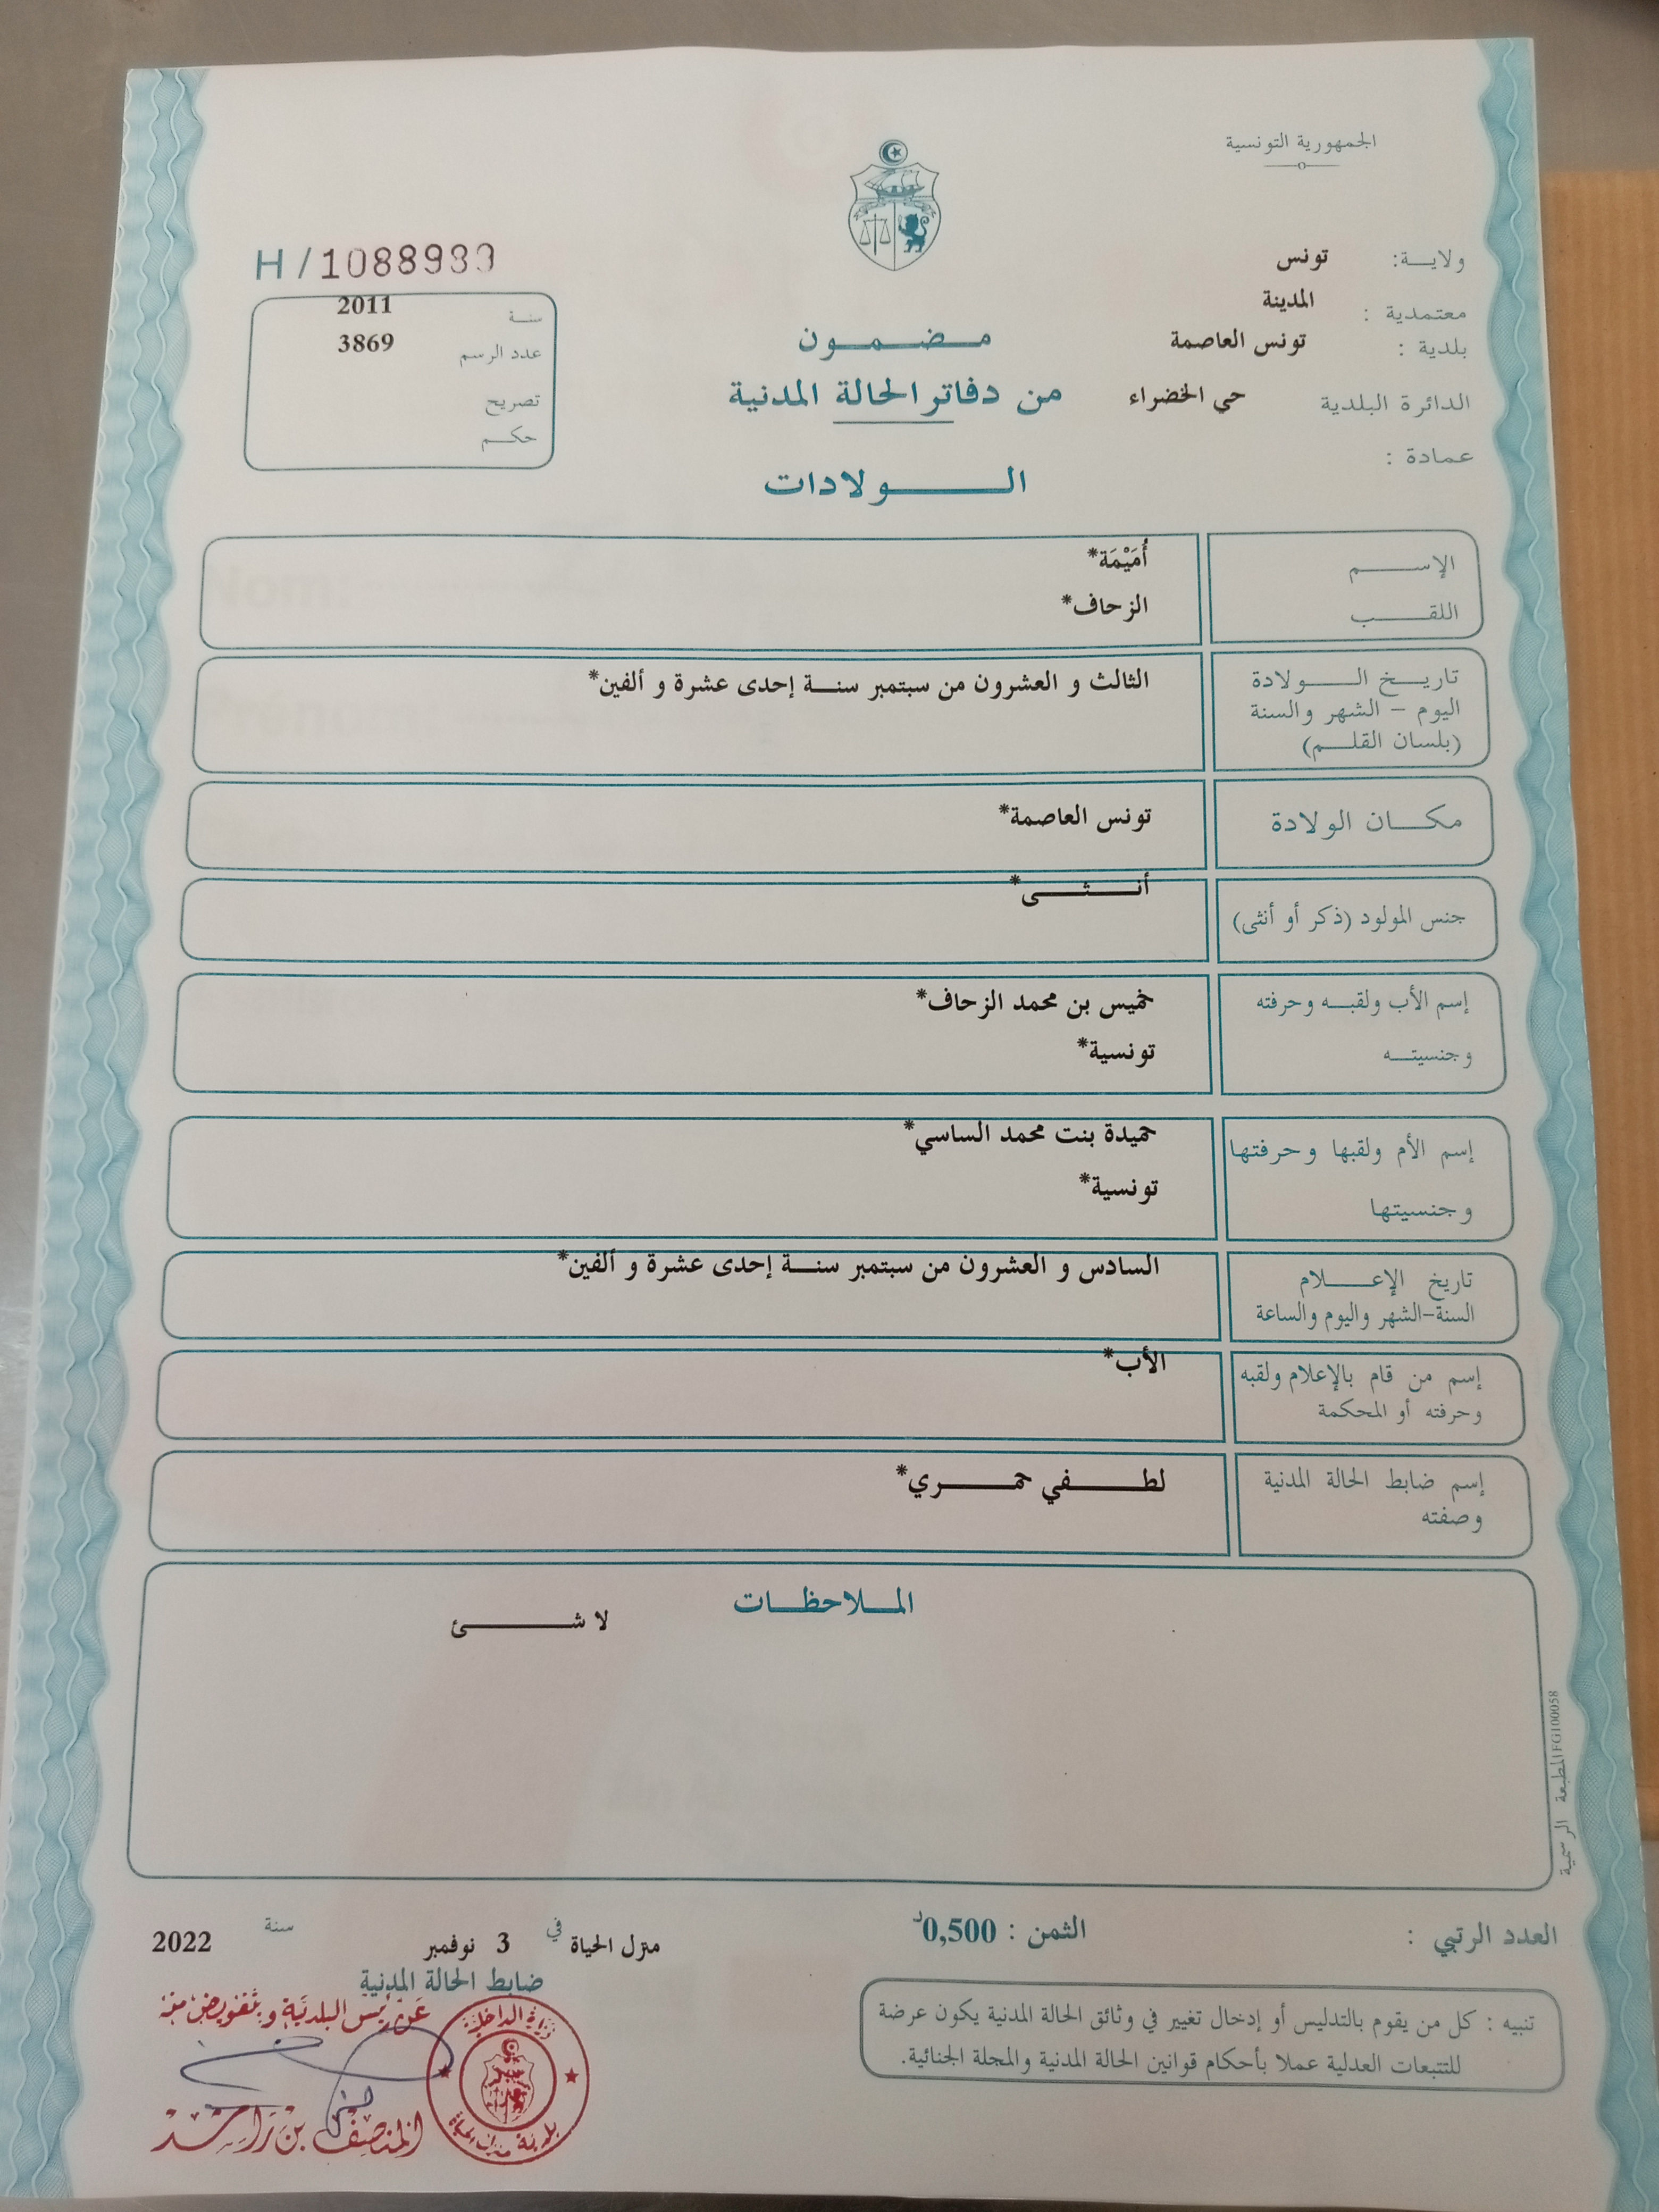 الجمهورية التونسية
ولاية: تونس
معتمدية : المدينة
بلدية : تونس العاصمة
الدائرة البلدية حي الخضراء
عمادة :
H / 1088983
سنة 2011
عدد الرسم 3869
تصريح
حكم
مضمون
من دفاتر الحالة المدنية
الولادات
الإسم أُمَيْمَة*
اللقب الزحاف*
تاريخ الولادة الثالث و العشرون من سبتمبر سنة إحدى عشرة و ألفين*
اليوم - الشهر والسنة
(بلسان القلم)
مكان الولادة تونس العاصمة*
جنس المولود (ذكر أو أنثى) أنثى*
إسم الأب ولقبه وحرفته خميس بن محمد الزحاف*
وجنسيته تونسية*
إسم الأم ولقبها وحرفتها حميدة بنت محمد الساسي*
وجنسيتها تونسية*
تاريخ الإعلام السادس و العشرون من سبتمبر سنة إحدى عشرة و ألفين*
السنة-الشهر واليوم والساعة
إسم من قام بالإعلام ولقبه الأب*
وحرفته أو المحكمة
إسم ضابط الحالة المدنية لطفي حمري*
وصفته
الملاحظات
لا شئ
المطبعة الرسمية IFG100058
العدد الرتبي : الثمن : 0,500د
منزل الحياة في 3 نوفمبر سنة 2022
ضابط الحالة المدنية
عن رئيس البلدية وبتفويض منه
المنصف بن راشد
وزارة الداخلية
بلدية منزل الحياة
تنبيه : كل من يقوم بالتدليس أو إدخال تغيير في وثائق الحالة المدنية يكون عرضة
للتتبعات العدلية عملا بأحكام قوانين الحالة المدنية والمجلة الجنائية.